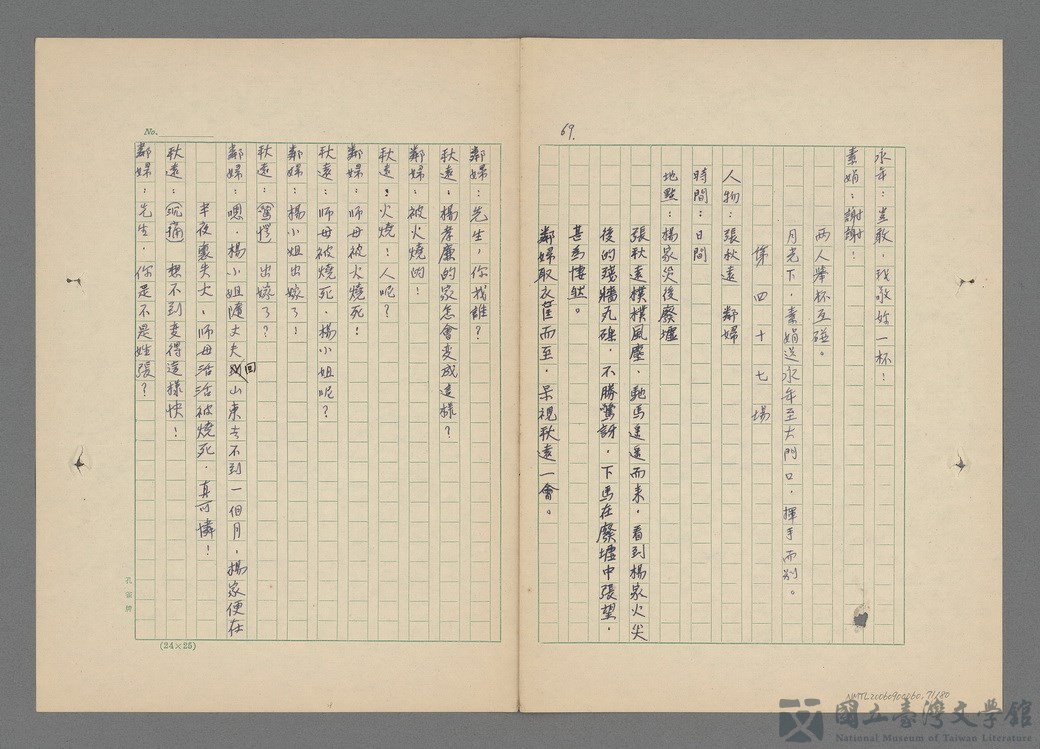 69.
永年：豈敢，我敬妳一杯！
素娟：謝謝！
兩人舉杯互碰。
月光下，素娟送永年至大門口，揮手而別。
第四十七場
人物：張秋遠　鄰婦
時間：日間
地點：楊家災後廢墟
張秋遠撲撲風塵，馳馬遙遙而來，看到楊家火災
後的殘牆瓦礫，不勝驚訝，下馬在廢墟中張望，
甚為悽然。
鄰婦取衣筐而至，呆視秋遠一會。
鄰婦：先生，你找誰？
秋遠：楊孝廉的家怎會變成這樣？
鄰婦：被火燒的！
秋遠：火燒！人呢？
鄰婦：師母被火燒死！
秋遠：師母被燒死，楊小姐呢？
鄰婦：楊小姐出嫁了！
秋遠：（驚愕）出嫁了？
鄰婦：嗯，楊小姐隨丈夫回山東去不到一個月，楊家便在
半夜裏失火，師母活活被燒死，真可憐！
秋遠：（沉痛）想不到變得這樣快！
鄰婦：先生，你是不是姓張？
No.
孔雀牌
(24×25)
NMTL20060900060.71/80
國立臺灣文學館
National Museum of Taiwan Literature